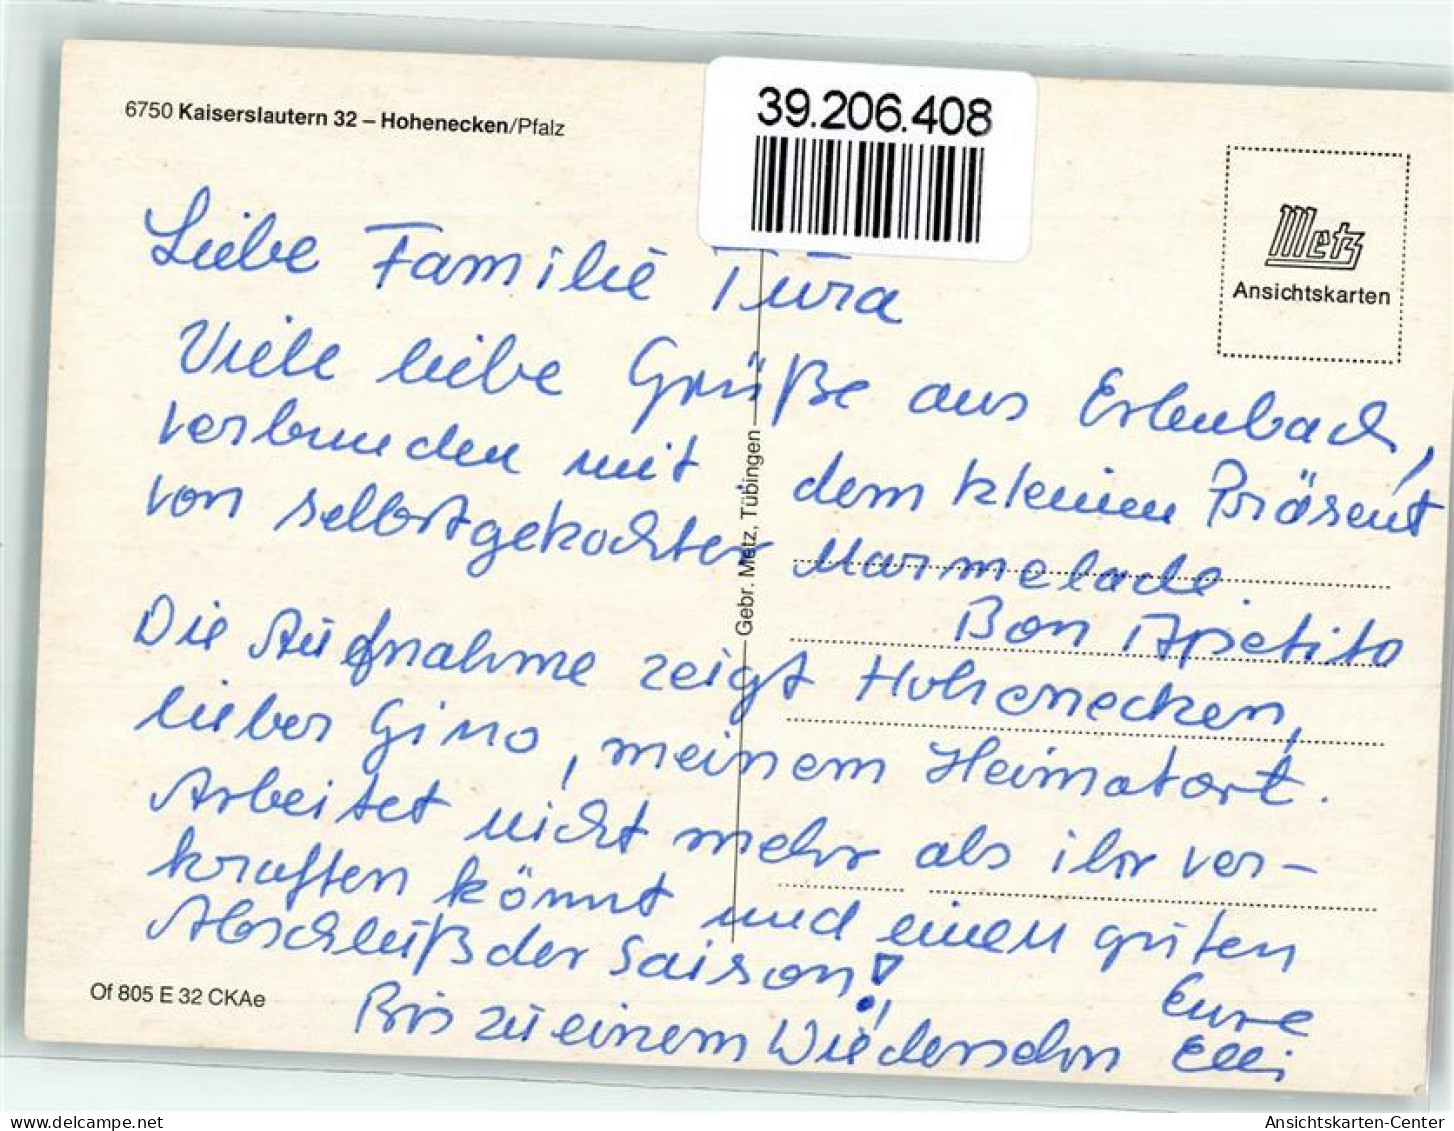 6750 Kaiserslautern 32 – Hohenecken/Pfalz
39.206.408
Metz
Ansichtskarten
Liebe Familie Tura
Viele liebe Grüße aus Erlenbach,
verbunden mit dem kleinen Präsent
von selbstgekochter Marmelade.
Bon Apetito
Die Aufnahme zeigt Hohenecken,
lieber Gino, meinem Heimatort.
Arbeitet nicht mehr als ihr ver-
kraften könnt und einen guten
Abschluß der Saison!
Bis zu einem Wiedersehn
Eure
Elli
Gebr. Metz, Tübingen
Of 805 E 32 CKAe
oldthing.net
Ansichtskarten-Center